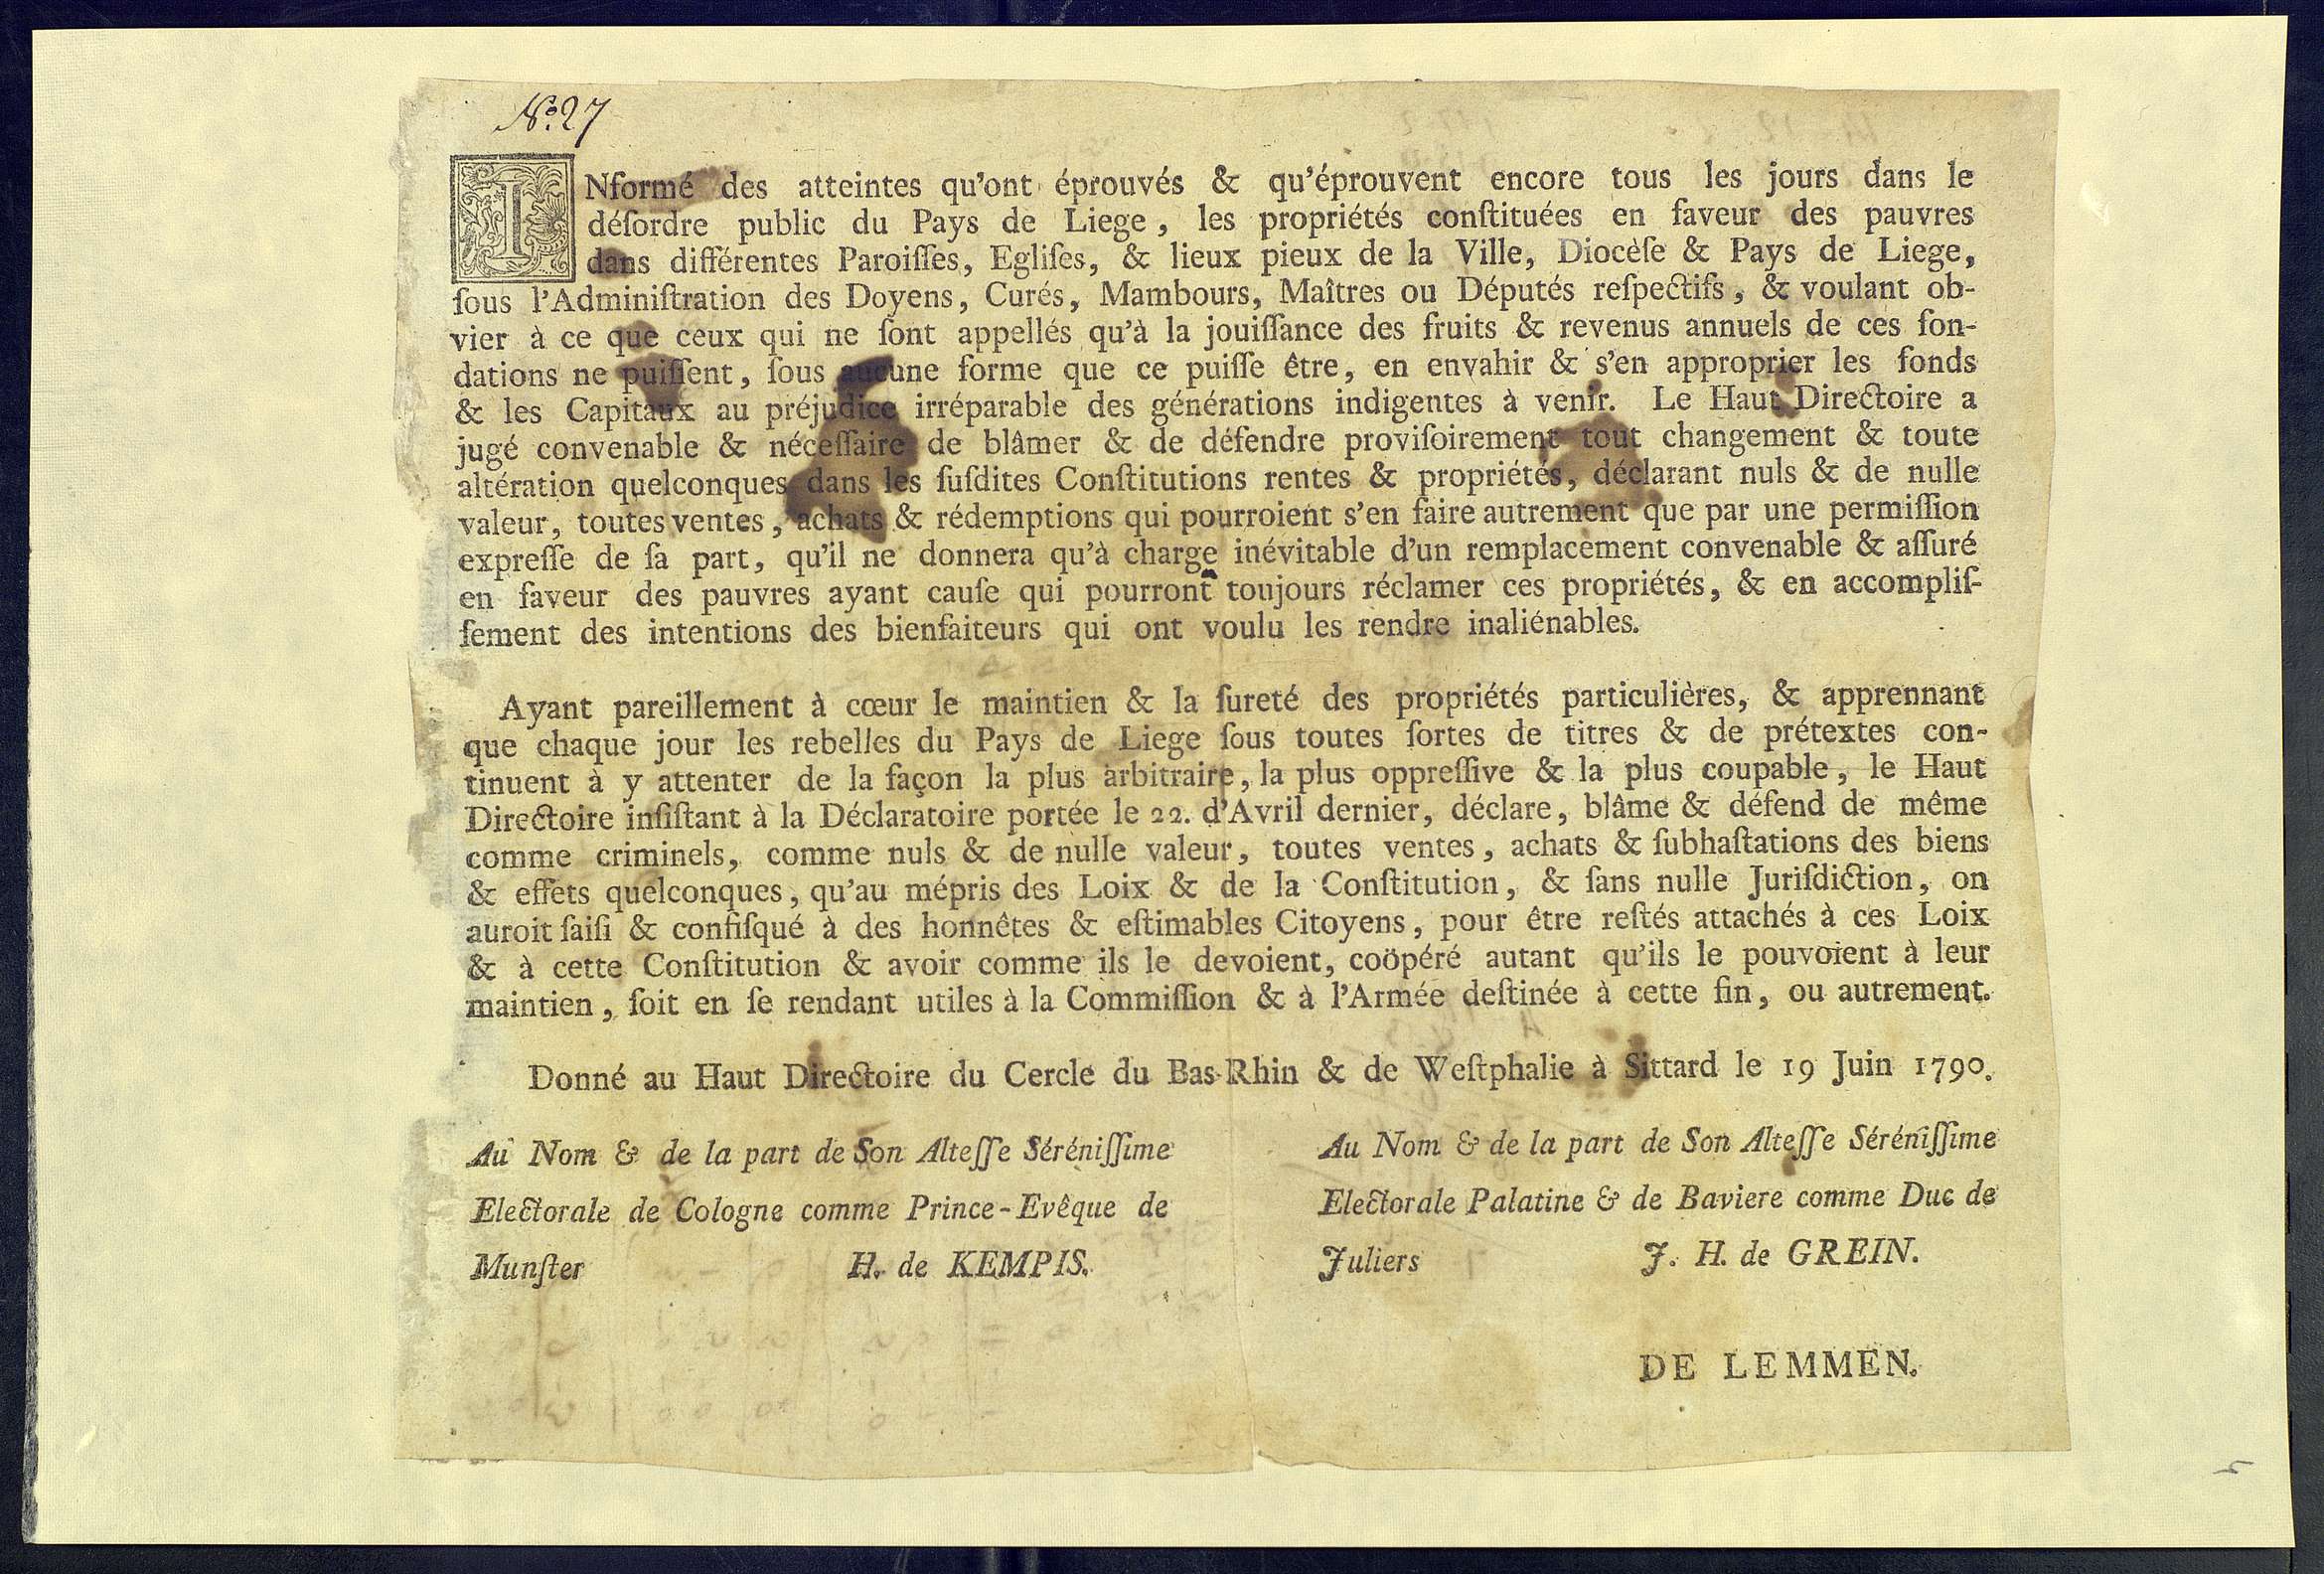 No. 27
INformé des atteintes qu'ont éprouvés & qu'éprouvent encore tous les jours dans le
déſordre public du Pays de Liege, les propriétés conſtituées en faveur des pauvres
dans différentes Paroiſſes, Egliſes, & lieux pieux de la Ville, Diocèſe & Pays de Liege,
ſous l'Adminiſtration des Doyens, Curés, Mambours, Maîtres ou Députés reſpectifs, & voulant ob-
vier à ce que ceux qui ne ſont appellés qu'à la jouiſſance des fruits & revenus annuels de ces fon-
dations ne puiſſent, ſous aucune forme que ce puiſſe être, en envahir & s'en approprier les fonds
& les Capitaux au préjudice irréparable des générations indigentes à venir. Le Haut Directoire a
jugé convenable & néceſſaire de blâmer & de défendre proviſoirement tout changement & toute
altération quelconques dans les ſuſdites Conſtitutions rentes & propriétés, déclarant nuls & de nulle
valeur, toutes ventes, achats & rédemptions qui pourroient s'en faire autrement que par une permiſſion
expreſſe de ſa part, qu'il ne donnera qu'à charge inévitable d'un remplacement convenable & aſſuré
en faveur des pauvres ayant cauſe qui pourront toujours réclamer ces propriétés, & en accompliſ-
ſement des intentions des bienfaiteurs qui ont voulu les rendre inaliénables.
Ayant pareillement à cœur le maintien & la ſureté des propriétés particulières, & apprennant
que chaque jour les rebelles du Pays de Liege ſous toutes ſortes de titres & de prétextes con-
tinuent à y attenter de la façon la plus arbitraire, la plus oppreſſive & la plus coupable, le Haut
Directoire inſiſtant à la Déclaratoire portée le 22. d'Avril dernier, déclare, blâme & défend de même
comme criminels, comme nuls & de nulle valeur, toutes ventes, achats & ſubhaſtations des biens
& effets quelconques, qu'au mépris des Loix & de la Conſtitution, & ſans nulle Juriſdiction, on
auroit ſaiſi & confiſqué à des honnêtes & eſtimables Citoyens, pour être reſtés attachés à ces Loix
& à cette Conſtitution & avoir comme ils le devoient, coöpéré autant qu'ils le pouvoient à leur
maintien, ſoit en ſe rendant utiles à la Commiſſion & à l'Armée deſtinée à cette fin, ou autrement.
Donné au Haut Directoire du Cercle du Bas-Rhin & de Weſtphalie à Sittard le 19 Juin 1790.
Au Nom & de la part de Son Alteſſe Séréniſſime
Electorale de Cologne comme Prince-Evêque de
Munſter H. de KEMPIS.
Au Nom & de la part de Son Alteſſe Séréniſſime
Electorale Palatine & de Baviere comme Duc de
Juliers J. H. de GREIN.
DE LEMMEN.